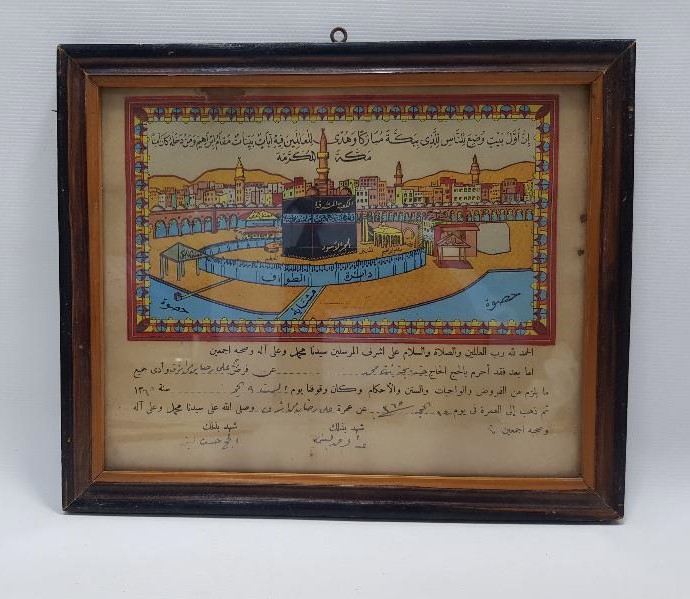 إن أول بيت وضع للناس للذي ببكة مباركا وهدى للعالمين فيه آيات بينات مقام إبراهيم ومن دخله كان آمنا
مكة المكرمة
الكعبة المشرفة
الحجر الأسود
دائرة الطواف
حصوة
مشاية
حصوة
الحمد لله رب العالمين والصلاة والسلام على اشرف المرسلين سيدنا محمد وعلى آله وصحبه اجمعين
اما بعد فقد أحرم بالحج الحاج عن وأدى جميع
ما يلزم من الفروض والواجبات والسنن والأحكام وكان وقوفنا يوم سنة
ثم ذهب إلى العمرة في يوم عن عمرة وصلى الله على سيدنا محمد وعلى آله
وصحبه اجمعين
شهد بذلك شهد بذلك